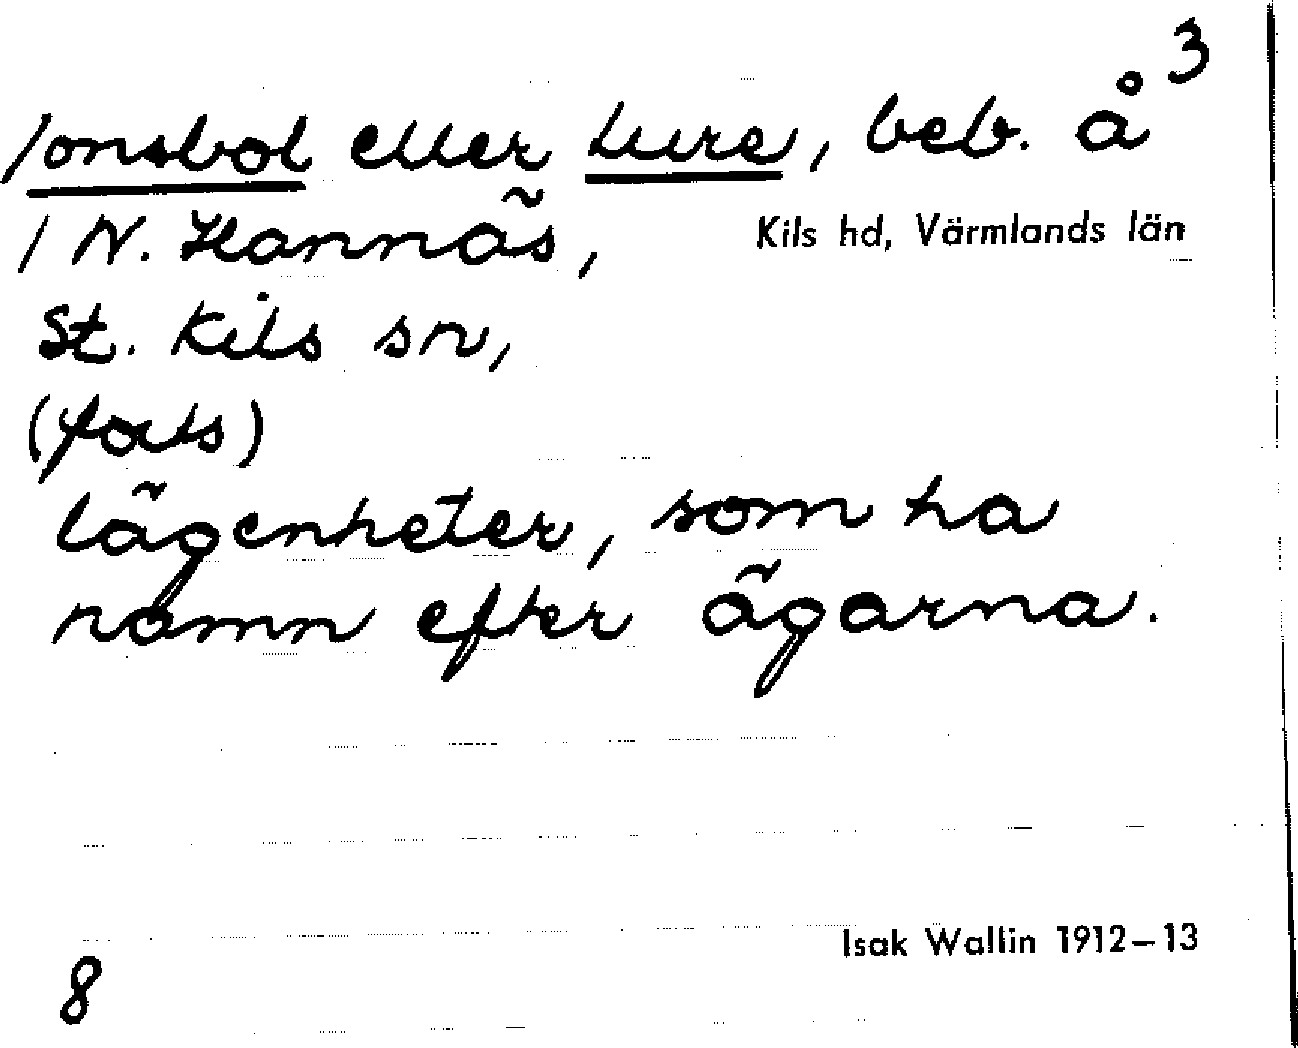 3
Jonsbol eller Lure, beb. å
/ N. Hannäs, Kils hd, Värmlands län
St. Kils sn,
(forts)
lägenheter, som ha
namn efter ägarna.
Isak Wallin 1912–13
8